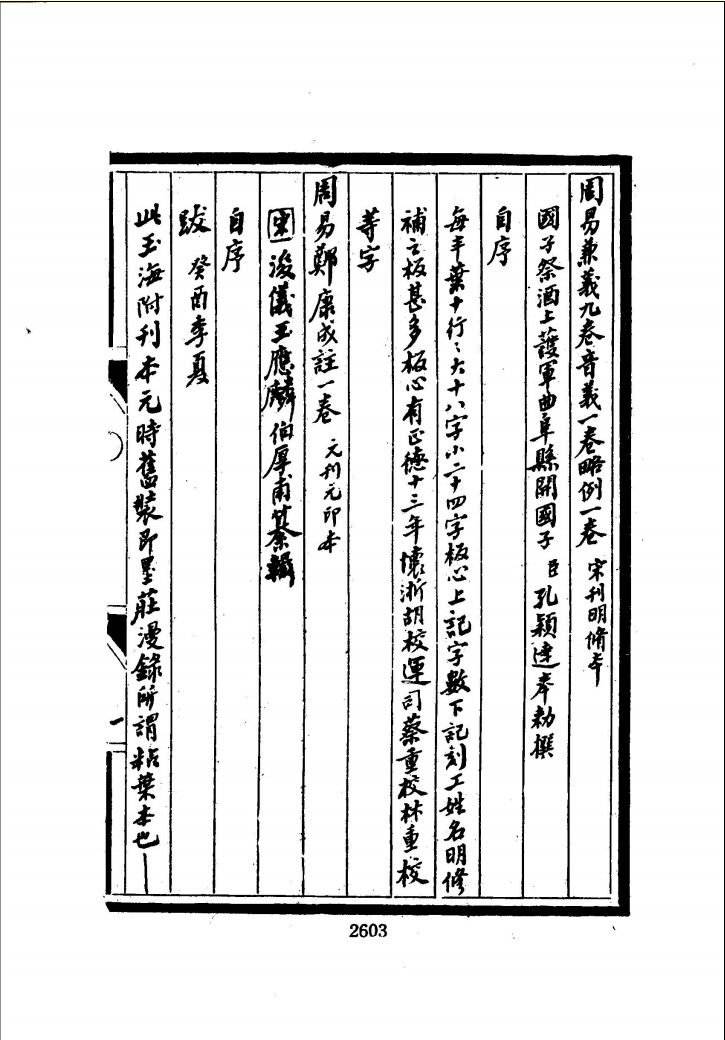 周易兼義九卷音義一卷略例一卷 宋刊明修本
國子祭酒上護軍曲阜縣開國子 臣 孔穎達奉勅撰
自序
每半葉十行〻大十八字小二十四字板心上記字數下記刻工姓名明修
補之板甚多板心有正德十三年懷浙胡校運司蔡重校林重校
等字
周易鄭康成註一卷 元刊元印本
宋 浚儀王應麟伯厚甫纂輯
自序
跋 癸酉季夏
此玉海附刊本元時舊裝即墨莊漫錄所謂粘葉本也
一
2603